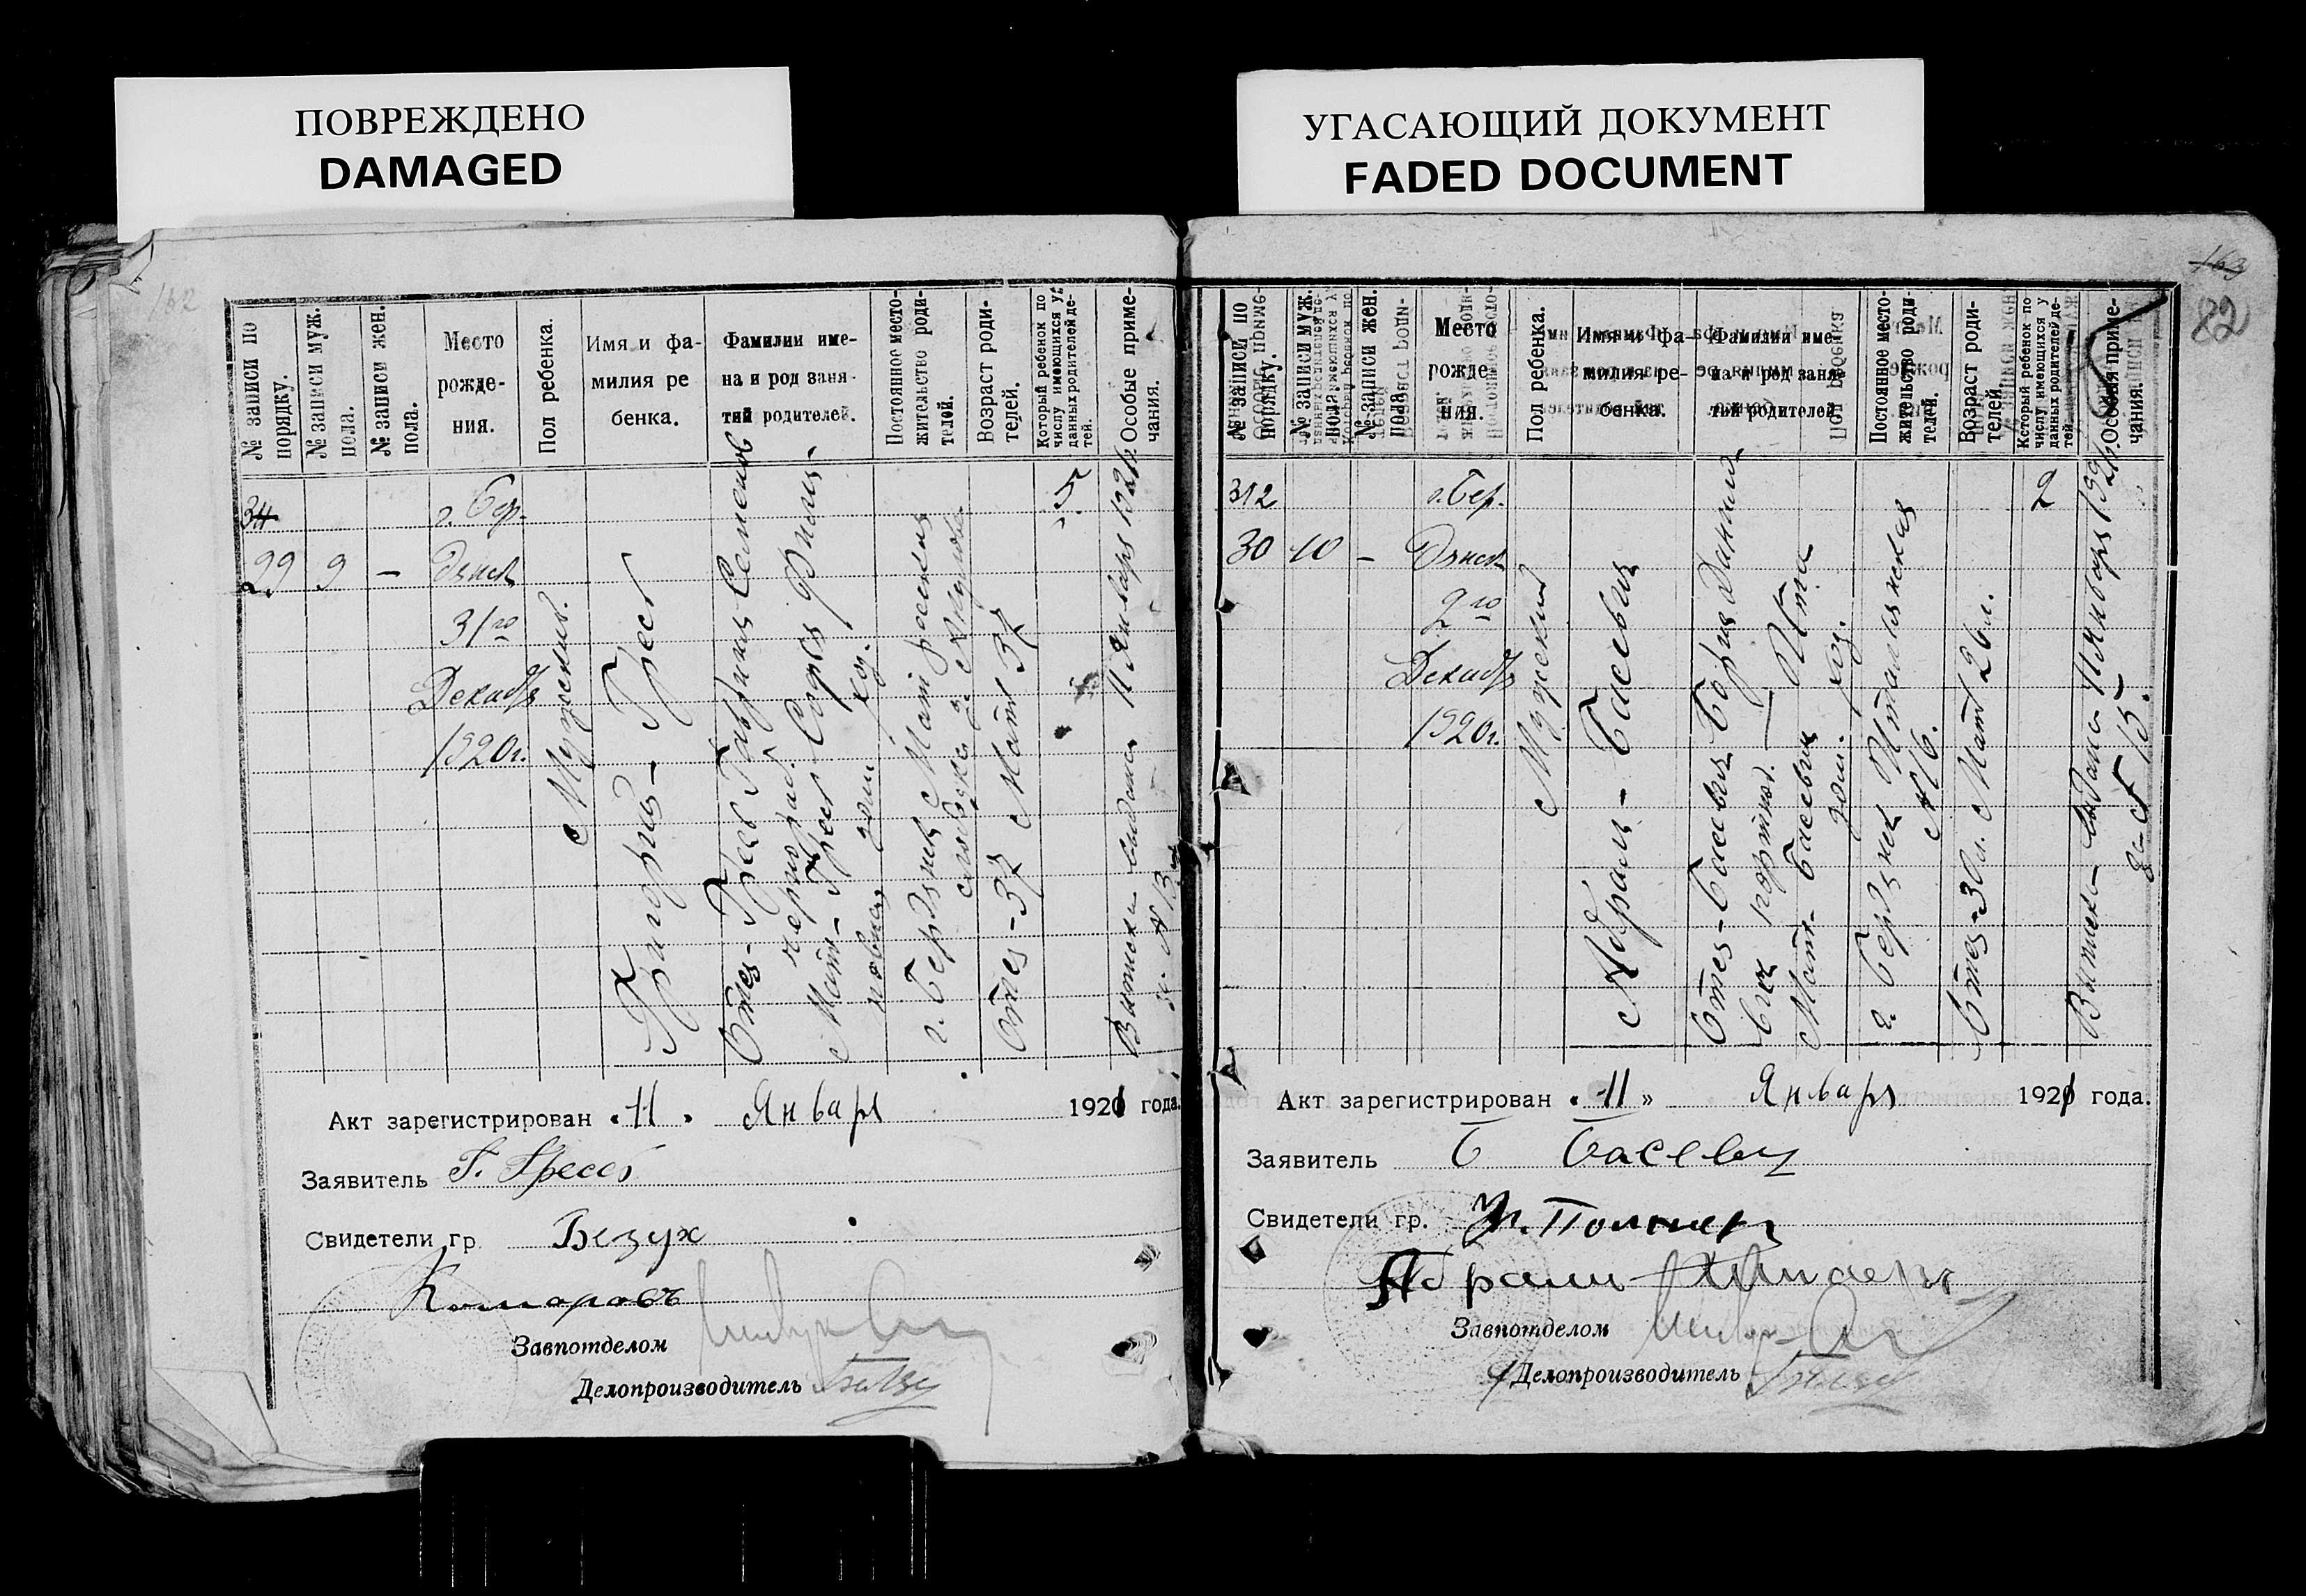 ПОВРЕЖДЕНО
DAMAGED
УГАСАЮЩИЙ ДОКУМЕНТ
FADED DOCUMENT
162
№ записи по порядку.
№ записи муж. пола.
№ записи жен. пола.
Место рожде-
ния.
Пол ребенка.
Имя и фа-
милия ре
бенка.
Фамилии име-
на и род заня-
тий родителей.
Постоянное место-
жительство роди-
телей.
Возраст роди-
телей.
Который ребенок по
числу имеющихся у
данных родителей де-
тей.
Особые приме-
чания.
29
9
—
г. Бер-
дянск
31го
Декабря
1920г.
Мужской.
Григорий – Гресс
Отец – Гресс Гавриил Семенов
Мать – Гресс София Филип-
повна
г. Бердянск
Отец – 37 Мать 37
5
Выписки выдана 11 Января 1921г.
за № 13
Акт зарегистрирован „11" Январь 1921 года.
Заявитель Г. Гресс
Свидетели гр. Безух
Комаровъ
Завпотделом
Делопроизводитель
163
82
№ записи по
порядку.
№ записи муж.
пола
№ записи жен.
пола
Место
рожде-
ния.
Пол ребенка.
Имя и фа-
милия ре-
бенка.
Фамилии име-
на и род заня-
тий родителей
Постоянное место-
жительство роди-
телей.
Возраст роди-
телей
Который ребенок по
числу имеющихся у
данных родителей де-
тей
Особые приме-
чания.
312
30
10
—
г. Бер-
дянск
2го
Декабря
1920г.
Мужской
Абрам – Басевич
Отец – Басевич Борис Данило-
вич портной.
Мать – Басевич Ита
дом. хоз.
г. Бердянск Итальянская
№ 6.
Отец – 30л. Мать 26 л.
2
Выписка выдана 11 Января 1921г.
за № 15.
Акт зарегистрирован „11" Январь 1921 года.
Заявитель Б Басевич
Свидетели гр.
Абрам
Завпотделом
Делопроизводитель